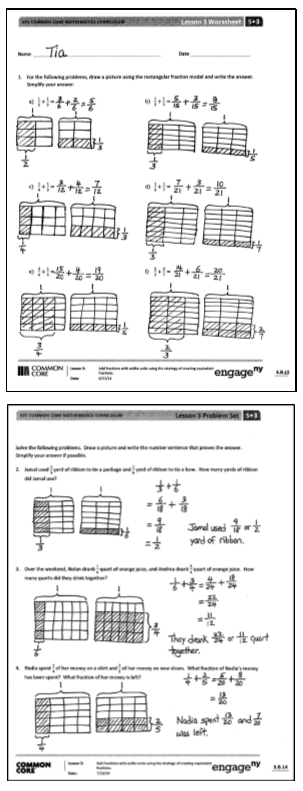 NYS COMMON CORE MATHEMATICS CURRICULUM Lesson 3 Worksheet 5•3
Name Tia Date
1. For the following problems, draw a picture using the rectangular fraction model and write the answer.
Simplify your answer.
a) 1/2 + 1/3 = 3/6 + 2/6 = 5/6 b) 1/3 + 1/5 = 5/15 + 3/15 = 8/15
1/2 1/3 1/3 1/5
c) 1/4 + 1/3 = 3/12 + 4/12 = 7/12 d) 1/3 + 1/7 = 7/21 + 3/21 = 10/21
1/4 1/3 1/3 1/7
e) 3/4 + 1/5 = 15/20 + 4/20 = 19/20 f) 2/3 + 2/7 = 14/21 + 6/21 = 20/21
3/4 1/5 2/3 2/7
COMMON CORE Lesson 3: Add fractions with unlike units using the strategy of creating equivalent fractions.
Date: engage ny
NYS COMMON CORE MATHEMATICS CURRICULUM Lesson 3 Problem Set 5•3
Solve the following problems. Draw a picture and write the number sentence that proves the answer.
Simplify your answer if possible.
2. Jamal used 1/3 yard of ribbon to tie a package and 1/6 yard of ribbon to tie a bow. How many yards of ribbon
did Jamal use?
1/3 + 1/6
= 6/18 + 3/18
= 9/18
= 1/2
Jamal used 9/18 or 1/2
yard of ribbon.
1/3 1/6
3. Over the weekend, Nolan drank 1/6 quart of orange juice, and Andrea drank 3/4 quart of orange juice. How
many quarts did they drink together?
1/6 + 3/4 = 4/24 + 18/24
= 22/24
= 11/12
1/6 3/4
They drank 22/24 or 11/12 quart
together.
4. Nadia spent 1/4 of her money on a shirt and 2/5 of her money on new shoes. What fraction of Nadia's money
has been spent? What fraction of her money is left?
1/4 + 2/5 = 5/20 + 8/20
= 13/20
1/4 2/5
Nadia spent 13/20 and 7/20
was left.
COMMON CORE Lesson 3: Add fractions with unlike units using the strategy of creating equivalent fractions.
Date: engage ny 3.B.14